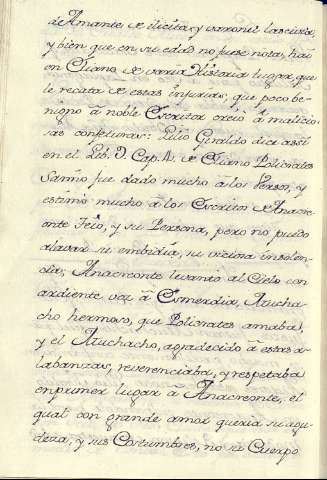 de Amante de ilicita, y varonil lascivia,
y bien que en su edad no fuese nota, hai
en Eliano de varia Historia lugar, que
le recata de estas injurias, que poco be-
nigno à noble Escritor creiò à malicio-
sas conjeturas: Lilio Giraldo dice assi
en el Lib. 9. Cap. 4. de Eliano Policrates
Samio fue dado mucho à los Versos, y
estimò mucho à los Escritos de Anacre-
onte Teio, y su Persona, pero no puedo
alavar su embidia, su viciosa insolen-
cia, Anacreonte levantò al Cielo con
ardiente voz à Esmerdia, Mucha-
cho hermoso, que Policrates amaba,
y el Muchacho, agradecido à estas a-
labanzas, reverenciaba, y respetaba
en primer lugar à Anacreonte, el
qual con grande amor queria su agu-
deza, y sus Costumbres, no su Cuerpo